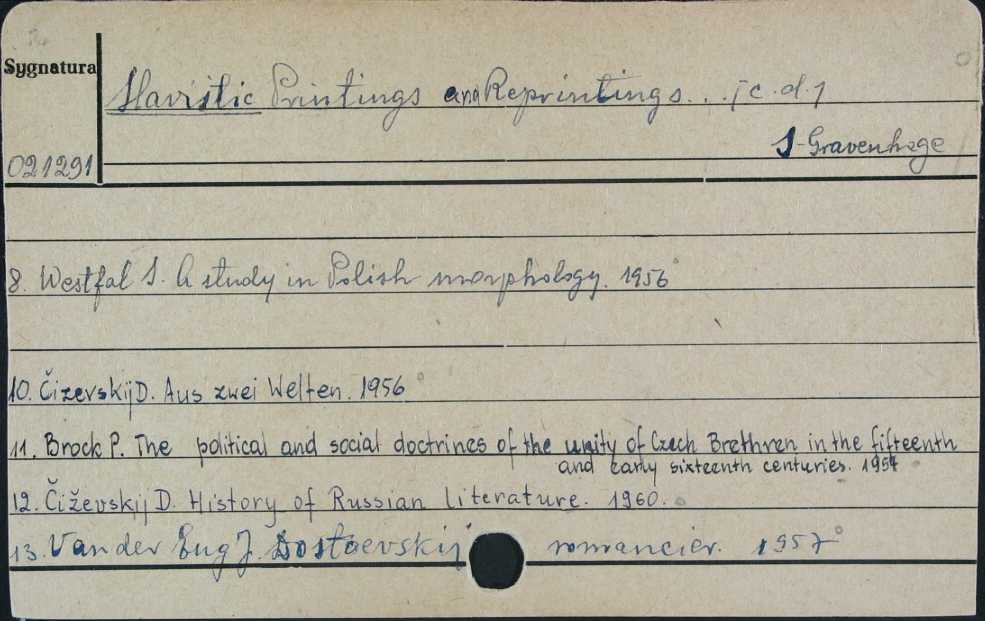 Sygnatura
Slavistic Printings and Reprintings... [c.d.]
S-Gravenhage
021291
8. Westfal S. A study in Polish morphology. 1956°
10. Čizevskij D. Aus zwei Welten. 1956°
11. Brock P. The political and social doctrines of the unity of Czech Brethren in the fifteenth
and early sixteenth centuries. 1957
12. Čiževskij D. History of Russian literature. 1960.°
13. Van der Eng J. Dostoevskij romancier. 1957°